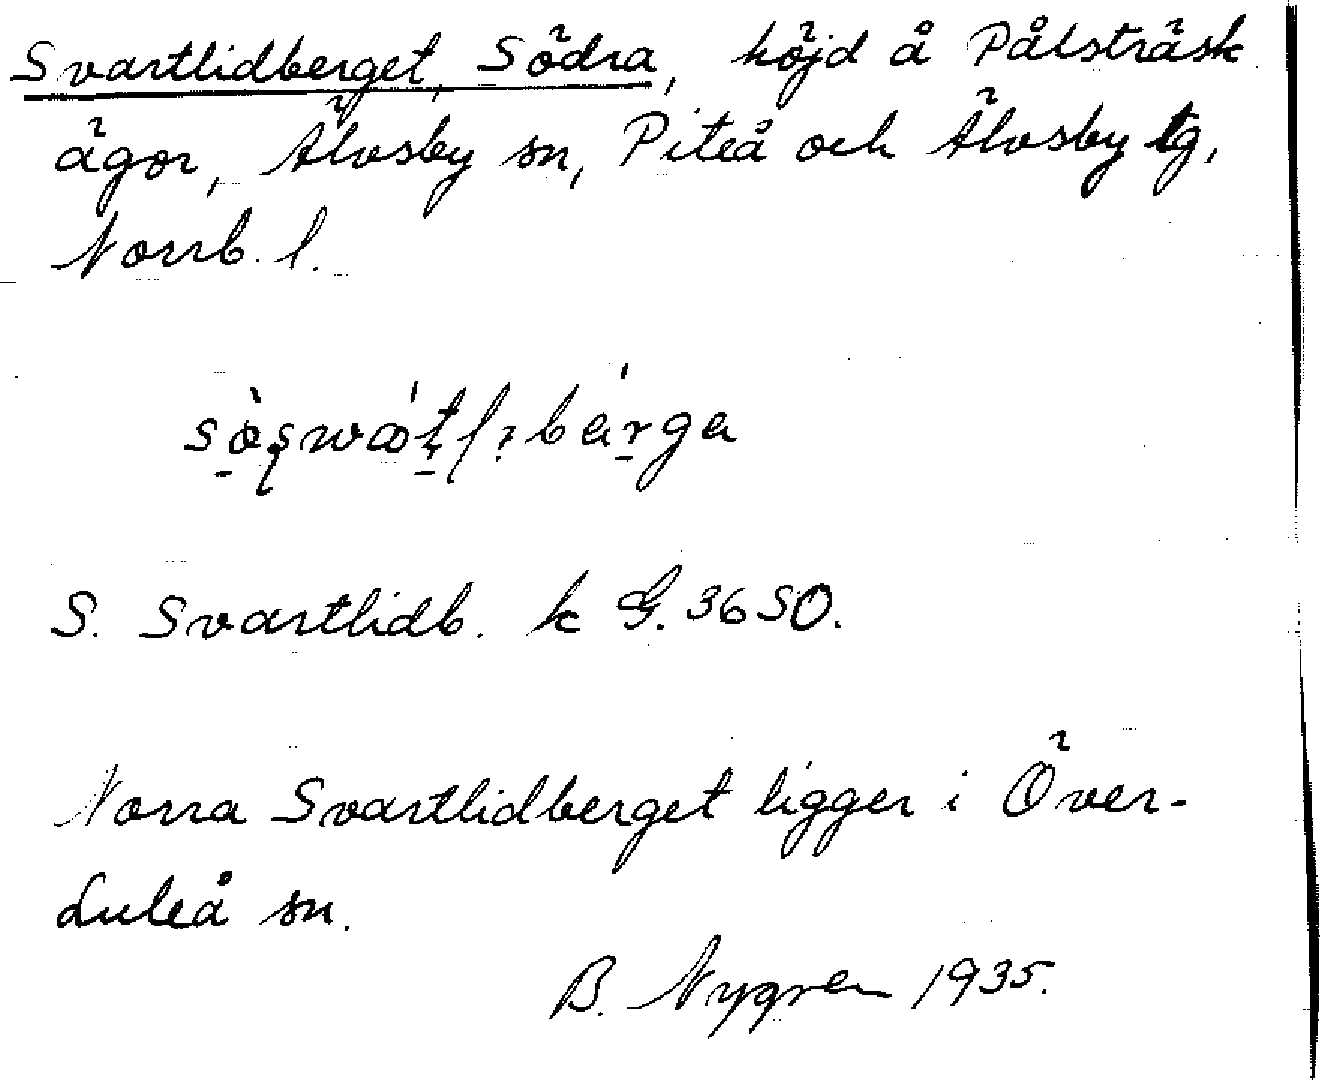 Svartlidberget, Södra, höjd å Pålsträsk
ägor, Älvsby sn, Piteå och Älvsby tg,
Norrb. l.
S. Svartlidb. k G. 3650.
Norra Svartlidberget ligger i Över-
Luleå sn.
B. Nygren 1935.